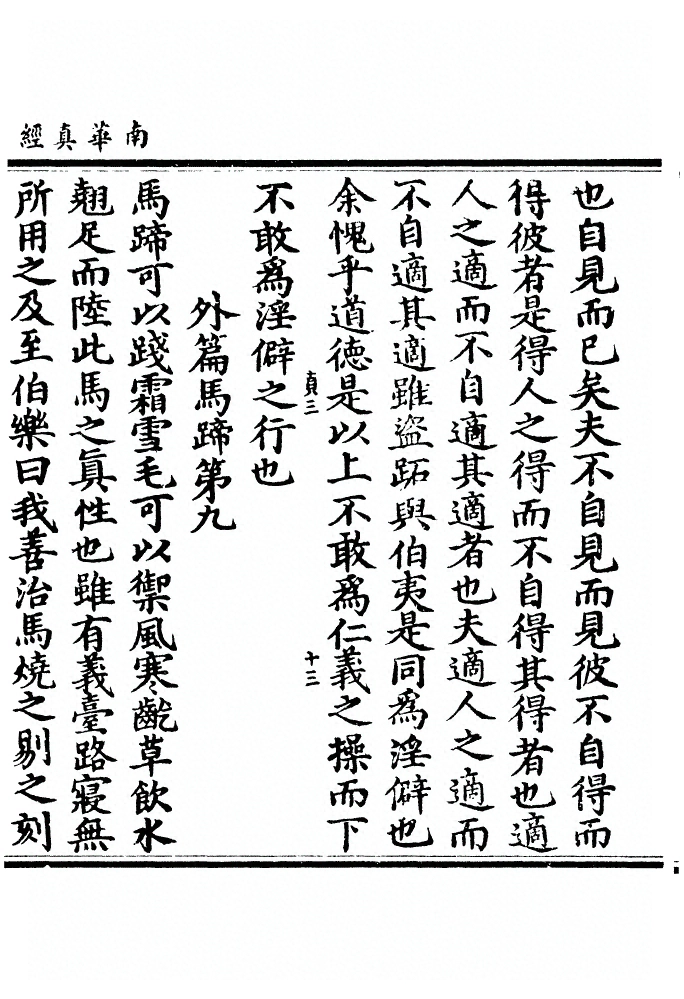 南華真經
也自見而已矣夫不自見而見彼不自得而
得彼者是得人之得而不自得其得者也適
人之適而不自適其適者也夫適人之適而
不自適其適雖盜跖與伯夷是同爲淫僻也
余愧乎道德是以上不敢爲仁義之操而下
貞三
十三
不敢爲淫僻之行也
外篇馬蹄第九
馬蹄可以踐霜雪毛可以禦風寒齕草飲水
翹足而陸此馬之眞性也雖有義臺路寢無
所用之及至伯樂曰我善治馬燒之剔之刻